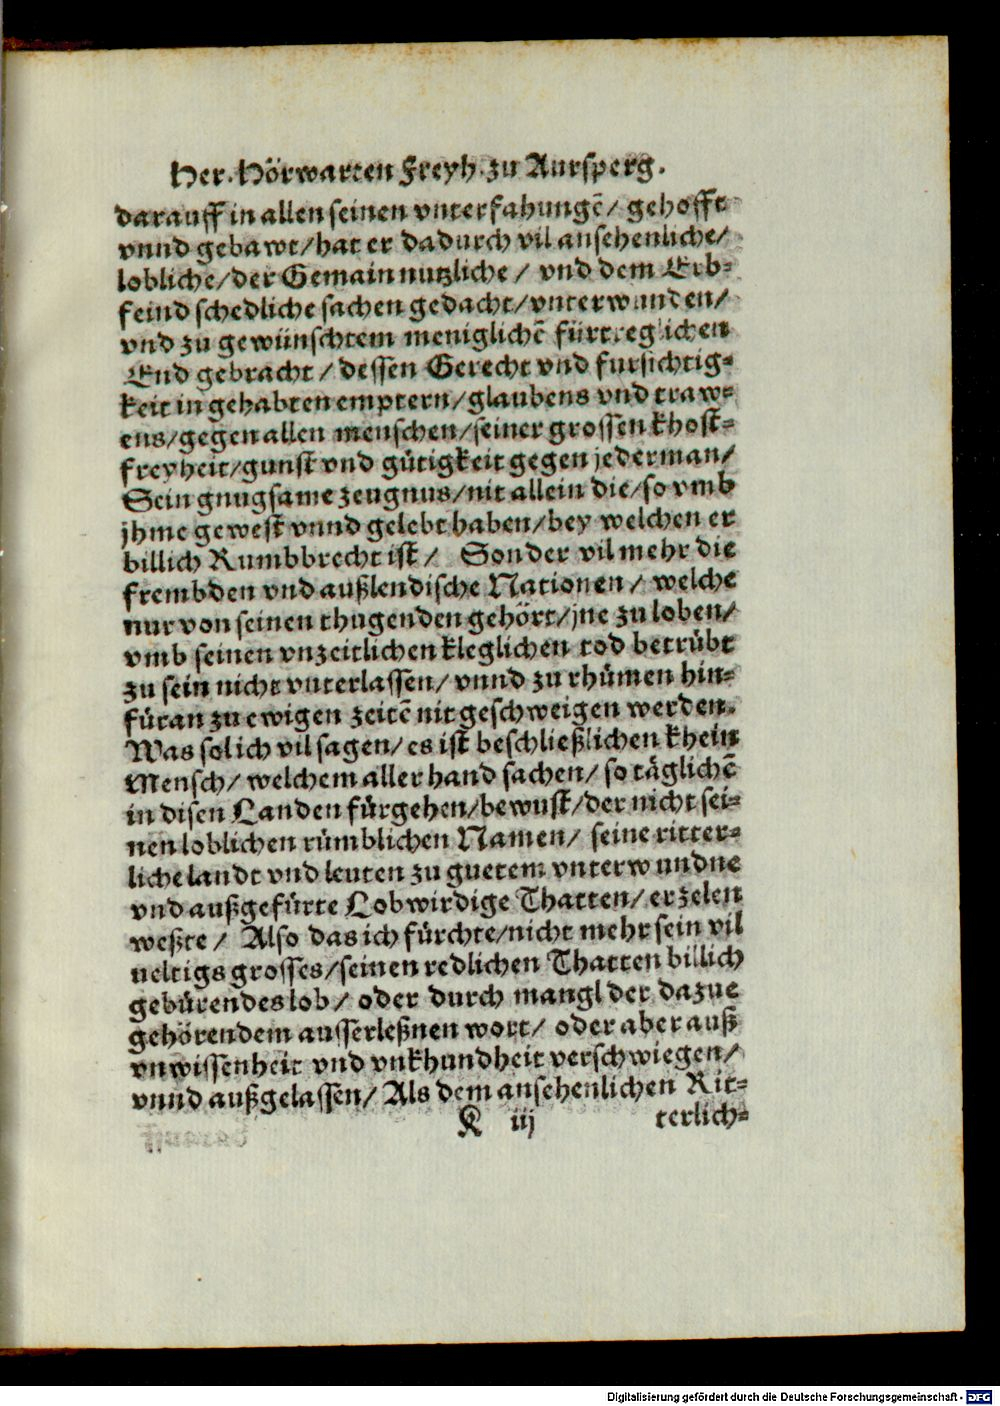 Her. Hörwarten Freyh. zu Aursperg.
darauff in allen seinen vnterfahungē / gehofft
vnnd gebawt / hat er dadurch vil ansehenliche /
lobliche / der Gemain nutzliche / vnd dem Erb-
feind schedliche sachen gedacht / vnterwunden /
vnd zu gewünschtem meniglichē fürtreglichen
End gebracht / dessen Gerecht vnd fursichtig-
keit in gehabten emptern / glaubens vnd traw-
ens / gegen allen menschen / seiner grossen khost-
freyheit / gunst vnd gütigkeit gegen jederman /
Sein gnugsame zeugnus / nit allein die / so vmb
jhme gewest vnnd gelebt haben / bey welchen er
billich Rumbbrecht ist / Sonder vil mehr die
frembden vnd außlendische Nationen / welche
nur von seinen thugenden gehört / jne zu loben /
vmb seinen vnzeitlichen kleglichen tod betrübt
zu sein nicht vnterlassen / vnnd zu rhümen hin-
füran zu ewigen zeitē nit geschweigen werden.
Was sol ich vil sagen / es ist beschließlichen khein
Mensch / welchem aller hand sachen / so täglichē
in disen Landen fürgehen / bewust / der nicht sei-
nen loblichen rümblichen Namen / seine ritter-
liche landt vnd leuten zu guetem vnterwundne
vnd außgefürte Lobwirdige Thatten / erzelen
weßte / Also das ich fürchte / nicht mehr sein vil
ueltigs grosses / seinen redlichen Thatten billich
gebürendes lob / oder durch mangl der dazue
gehörendem ausserleßnen wort / oder aber auß
vnwissenheit vnd vnkhundheit verschwiegen /
vnnd außgelassen / Als dem ansehenlichen Rit-
K iij terlich-
Digitalisierung gefördert durch die Deutsche Forschungsgemeinschaft - DFG